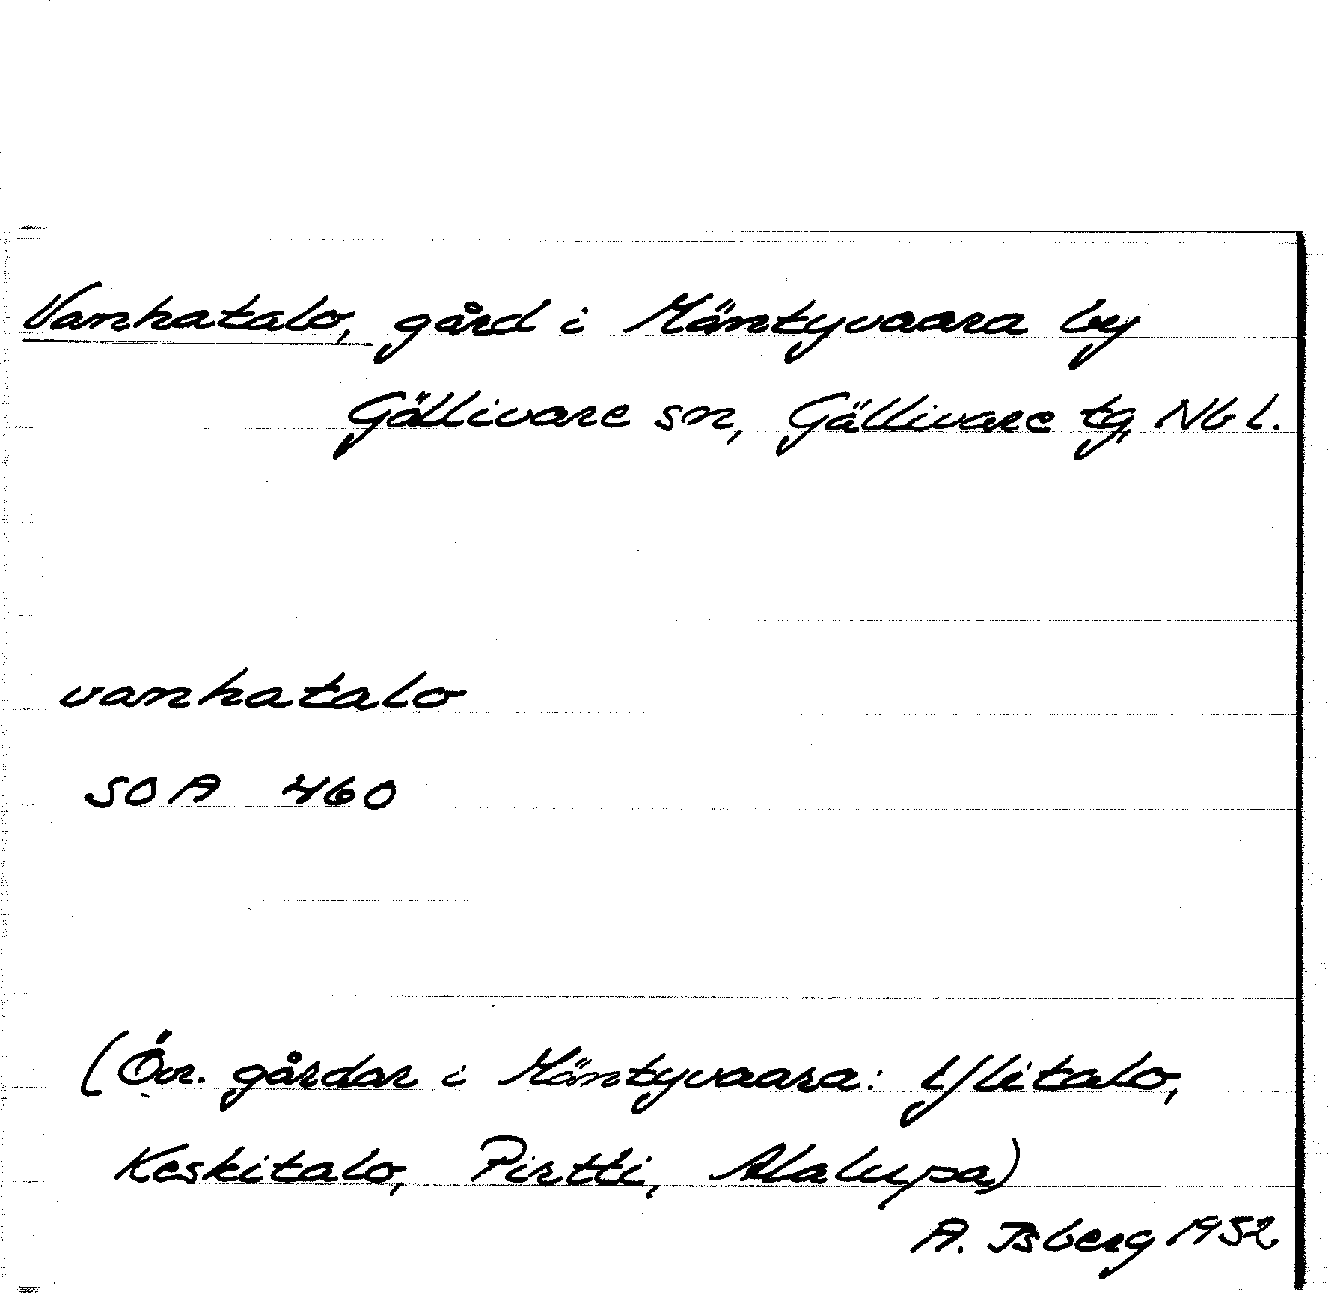 Vanhatalo, gård i Mäntyvaara by
Gällivare sn, Gällivare tg, Nb l.
vanhatalo
SOA 460
(Övr. gårdar i Mäntyvaara: Ylitalo,
Keskitalo, Pirtti, Alalupa)
A. Isberg 1952